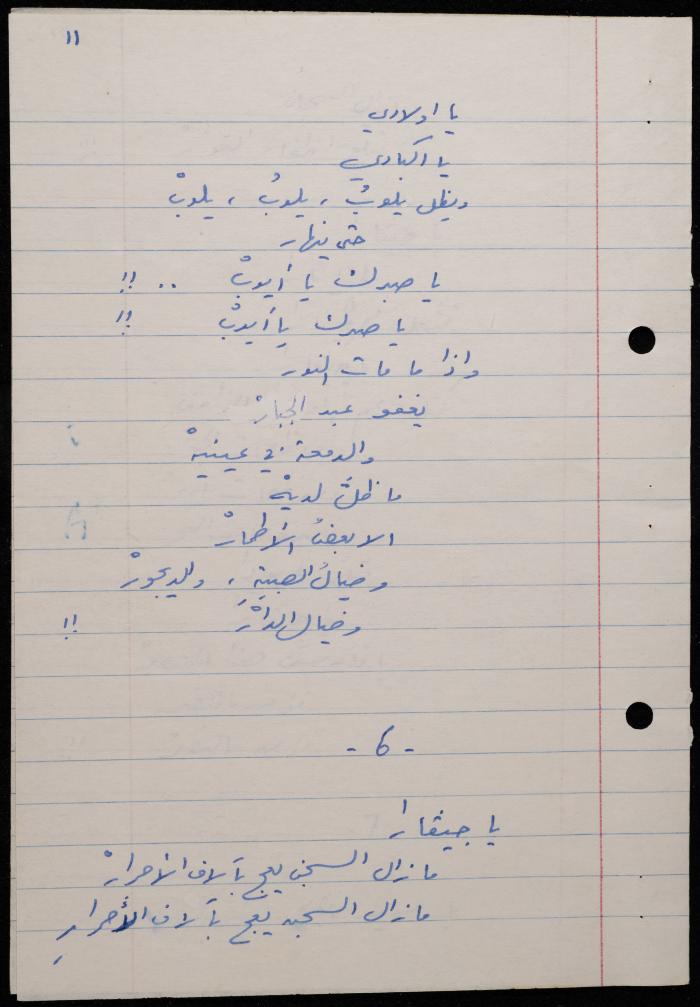 ١١
يا اولادي
يا اكبادي
ويظل يلوبُ ، يلوبُ ، يلوبْ
حتى ينهار
يا صبرك يا أيوبْ .. !!
يا صبرك يا أيوبْ !!
واذا ما مات النور
يغفو عبد الجبارْ
والدمعة في عينيهْ
ما ظلَّ لديهْ
الا بعضُ الأطمارْ
وخيالُ الصبيةِ ، والديجورْ
وخيال الدارْ !!
- ٦ -
يا جيفارا
مازال السجن يعج بآلاف الأحرارْ
مازال السجن يعج بآلاف الأحرارِ